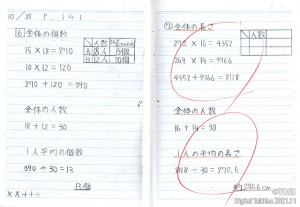 10/28 P.141
6 全体の個数
15×18=270
10×12=120
270+120=390
人数
A 18人 15個
B 12人 10個
全体の人数
18+12=30
1人平均の個数
390÷30=13
13個
全体の長さ
272×16=4352
269×14=3766
4352+3766=8118
人数
全体の人数
16+14=30
1人の平均の長さ
8118÷30=270.6
270.6cm